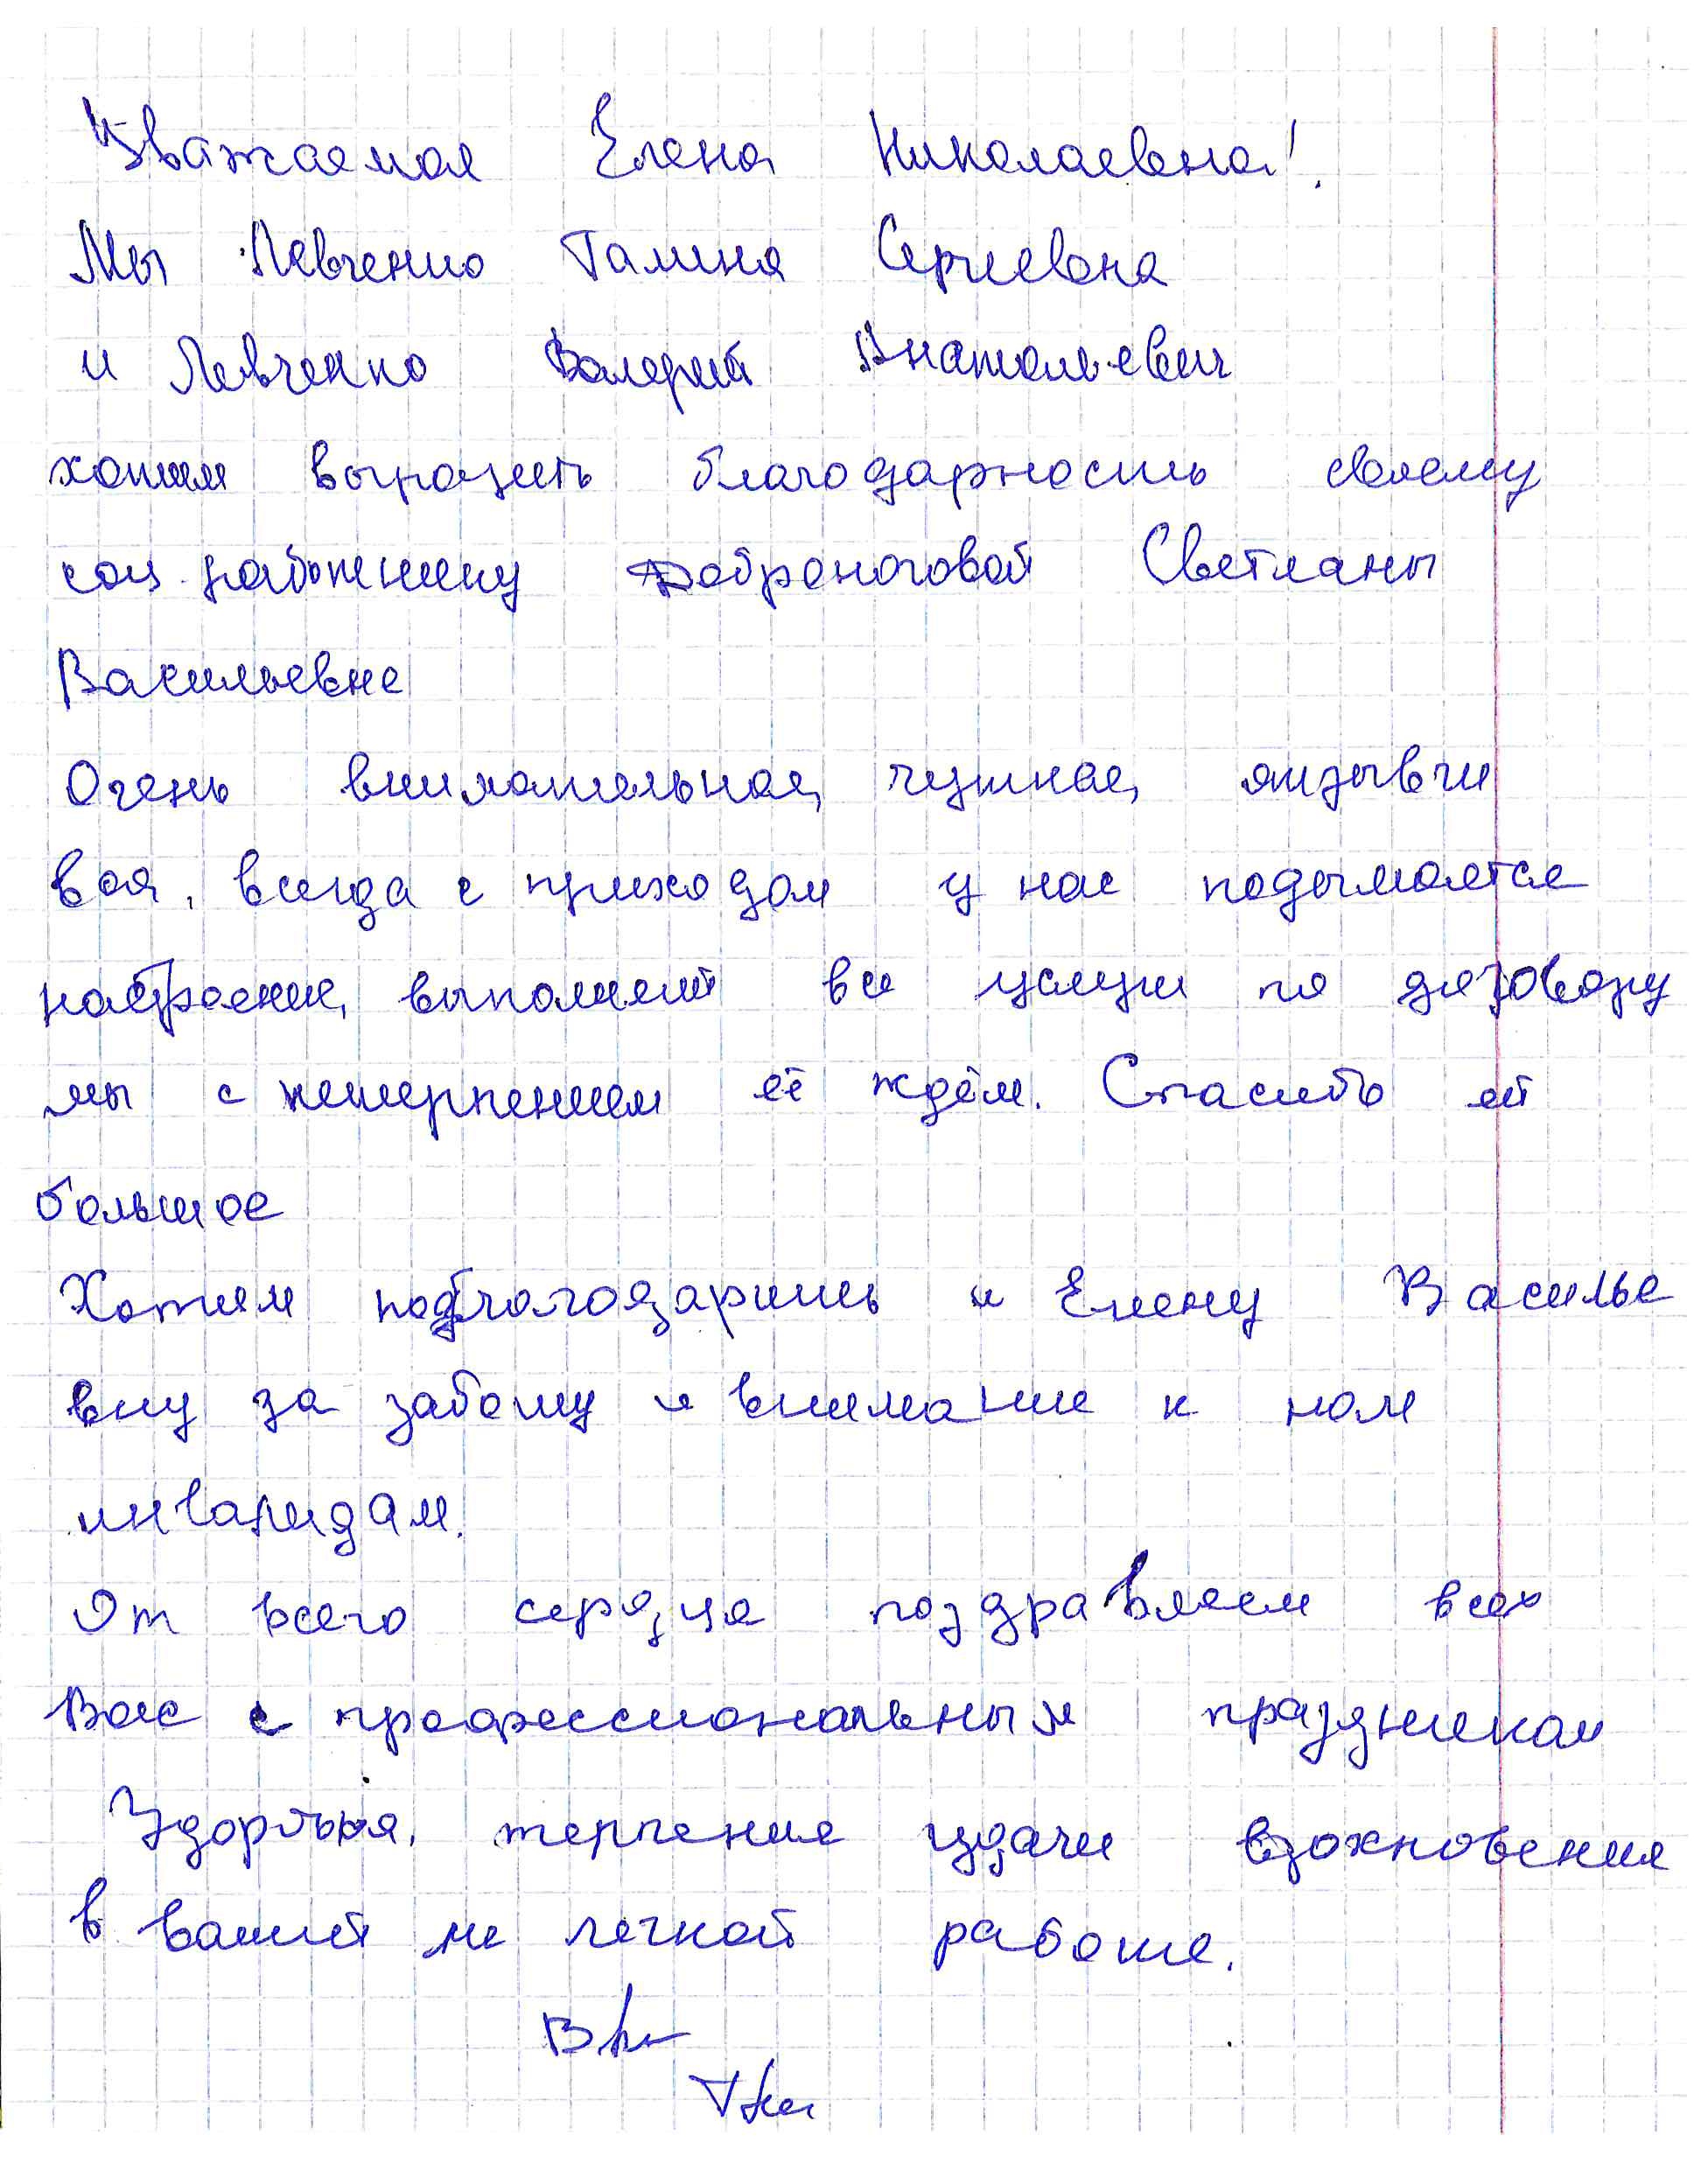 Уважаемая Елена Николаевна!
Мы Левченко Галина Сергеевна
и Левченко Валерий Анатольевич
хотим выразить благодарность своему
соц. работнику Доброноговой Светланы
Васильевне
Очень внимательная, чуткая, отзывчи
вая, всегда с приходом у нас подымается
настроение, выполняет все услуги по договору
мы с нетерпением её ждём. Спасибо ей
большое
Хотим поблагодарить и Елену Василье
вну за заботу и внимание к нам
инвалидам.
От всего сердца поздравляем всех
Вас с профессиональным праздником
Здоровья, терпения удачи вдохновения
в вашей не легкой работе.